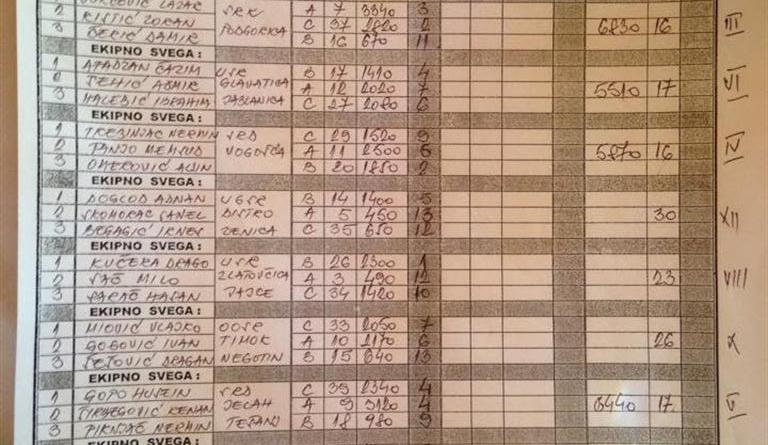 SRK A 7 3340 3
2 RISTIĆ ZORAN PODGORICA C 37 2820 2 6830 16 III
3 ĐERIĆ DAMIR B 16 670 11
EKIPNO SVEGA:
1 ĆAZIM USR B 17 1410 4
2 ADMIR GLAVATICA A 12 2020 7 5510 17 VI
3 HALEBIĆ IBRAHIM JABLANICA C 27 2080 6
EKIPNO SVEGA:
1 NERMIN SRD C 29 1520 9
2 PANJO MEMSUD VOGOŠĆA A 11 2500 5 5870 16 IV
3 OMEROVIĆ ALDIN B 20 1850 2
EKIPNO SVEGA:
1 DOGLOD ADNAN UGSR B 14 1400 5
2 SKOMORAC SANEL BISTRO A 5 450 13 30 XII
3 IRNES ZENICA C 35 650 12
EKIPNO SVEGA:
1 KUČERA DRAGO USR B 26 2300 1
2 SAČ MILO ZLATOVČICA A 3 490 12 23 VIII
3 SARAČ HASAN JAJCE C 34 1420 10
EKIPNO SVEGA:
1 MIOVIĆ VLAJKO OOSR C 33 2050 7
2 GOGOVIĆ IVAN TIMOK A 10 2170 6 26 X
3 DRAGAN NEGOTIN B 15 640 13
EKIPNO SVEGA:
1 GOPO HUSEIN SRD C 39 2340 4
2 KENAN JELAH A 9 3120 4 6440 17 V
3 NERMIN TEŠANJ B 18 980 9
EKIPNO SVEGA: